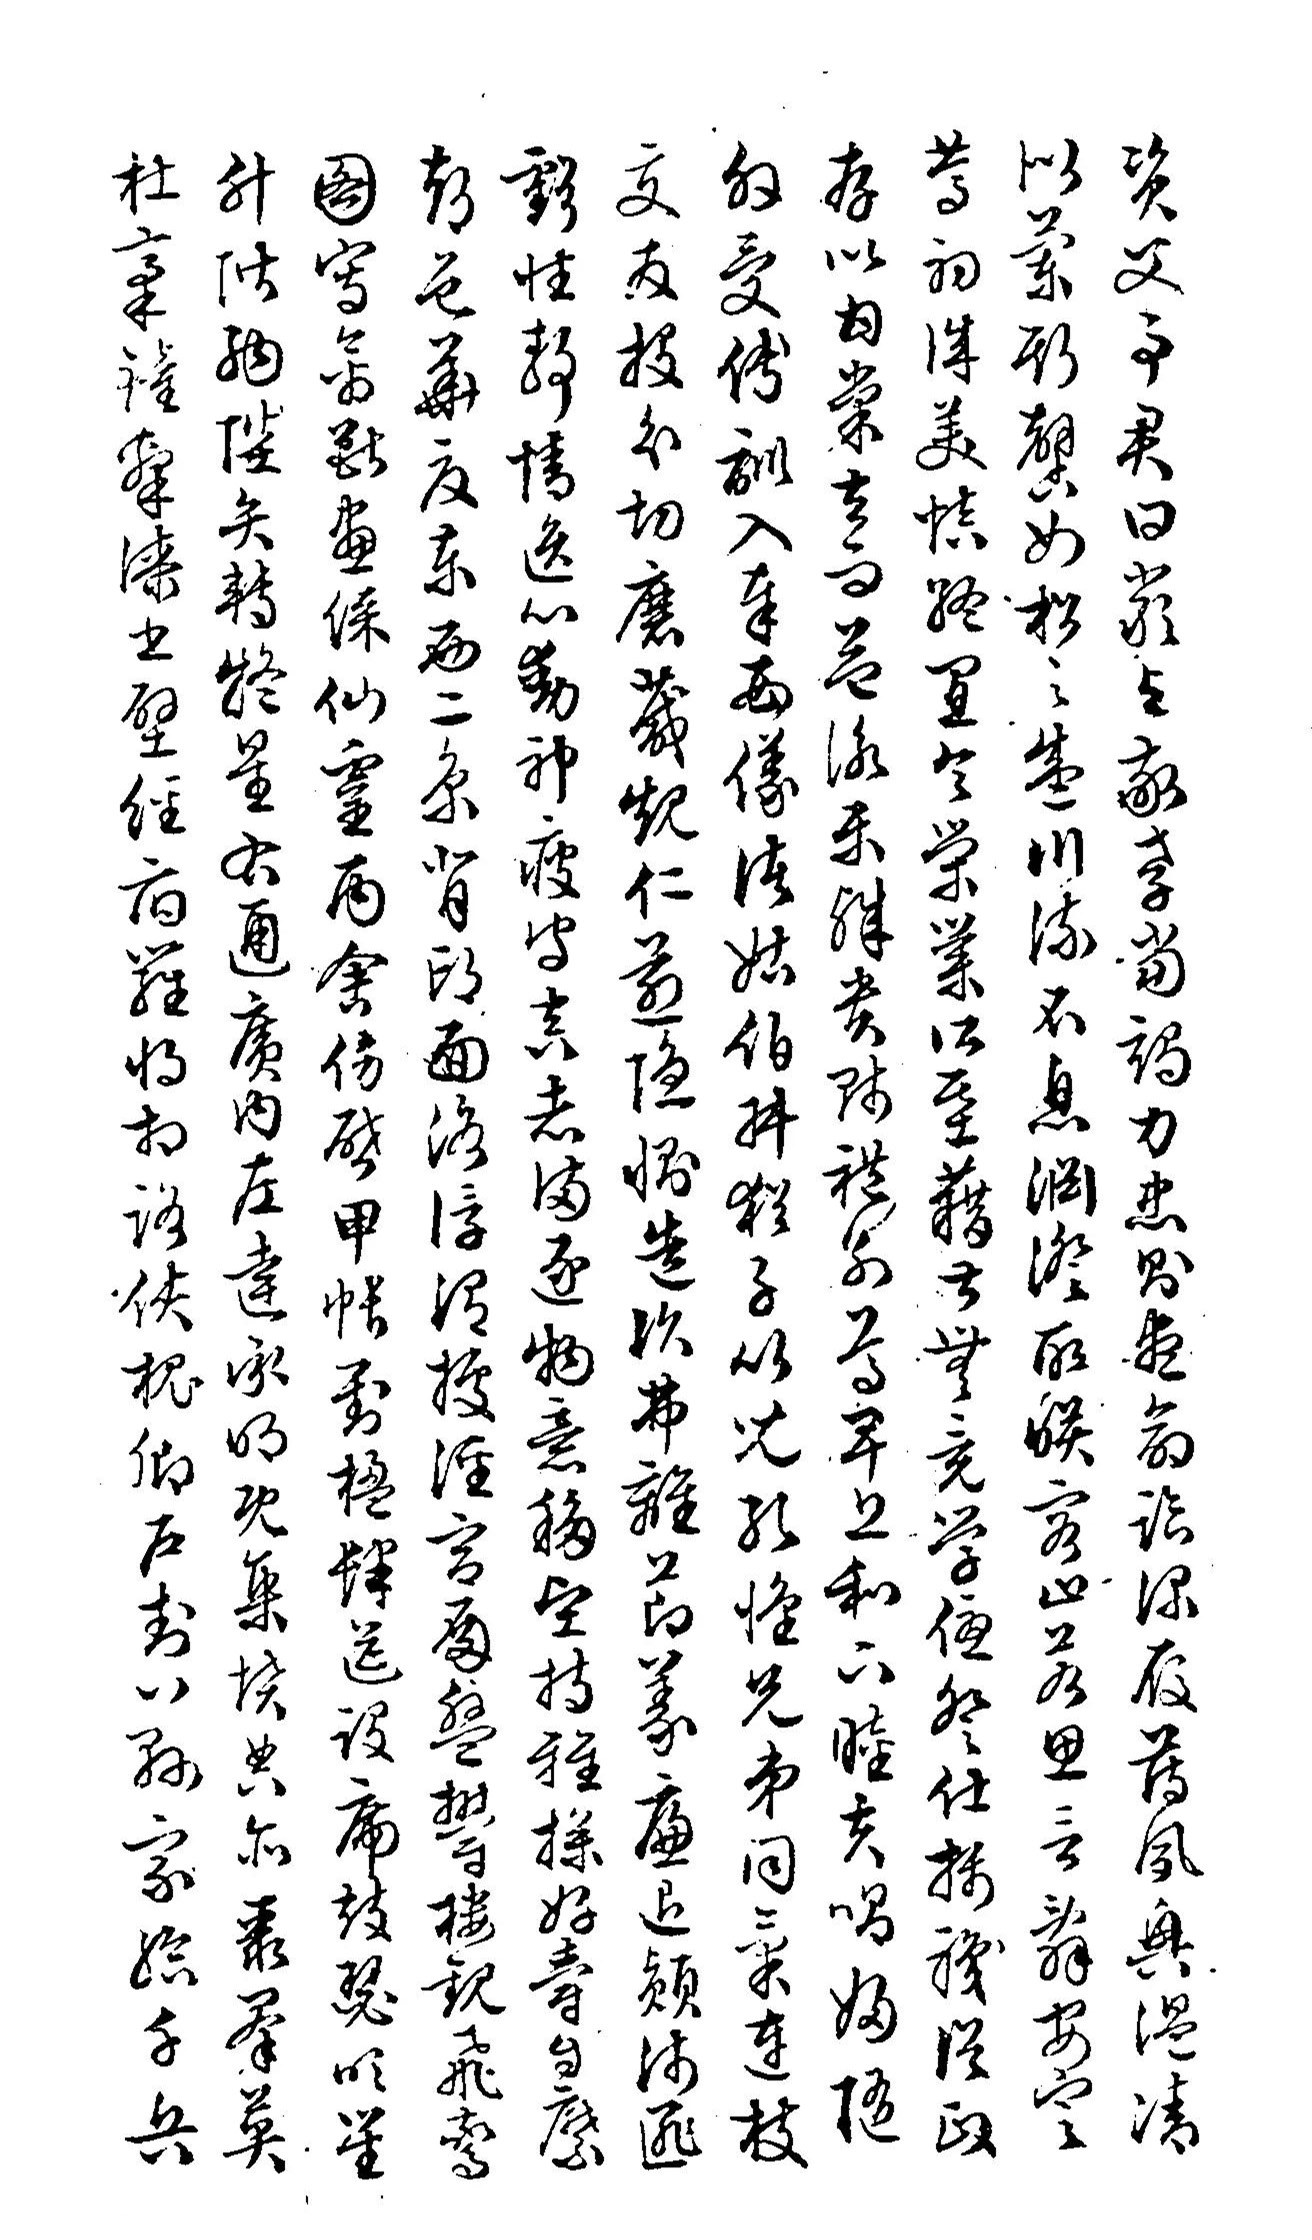 資父事君曰嚴與敬孝當竭力忠則盡命臨深履薄夙興溫凊
似蘭斯馨如松之盛川流不息淵澄取映容止若思言辭安定
篤初誠美慎終宜令榮業所基藉甚無竟學優登仕攝職從政
存以甘棠去而益詠樂殊貴賤禮別尊卑上和下睦夫唱婦隨
外受傅訓入奉母儀諸姑伯叔猶子比兒孔懷兄弟同氣連枝
交友投分切磨箴規仁慈隱惻造次弗離節義廉退顛沛匪
虧性靜情逸心動神疲守真志滿逐物意移堅持雅操好爵自縻
都邑華夏東西二京背邙面洛浮渭據涇宮殿盤鬱樓觀飛驚
圖寫禽獸畫綵仙靈丙舍傍啟甲帳對楹肆筵設席鼓瑟吹笙
升階納陛弁轉疑星右通廣內左達承明既集墳典亦聚群英
杜稾鍾隸漆書壁經府羅將相路俠槐卿戶封八縣家給千兵